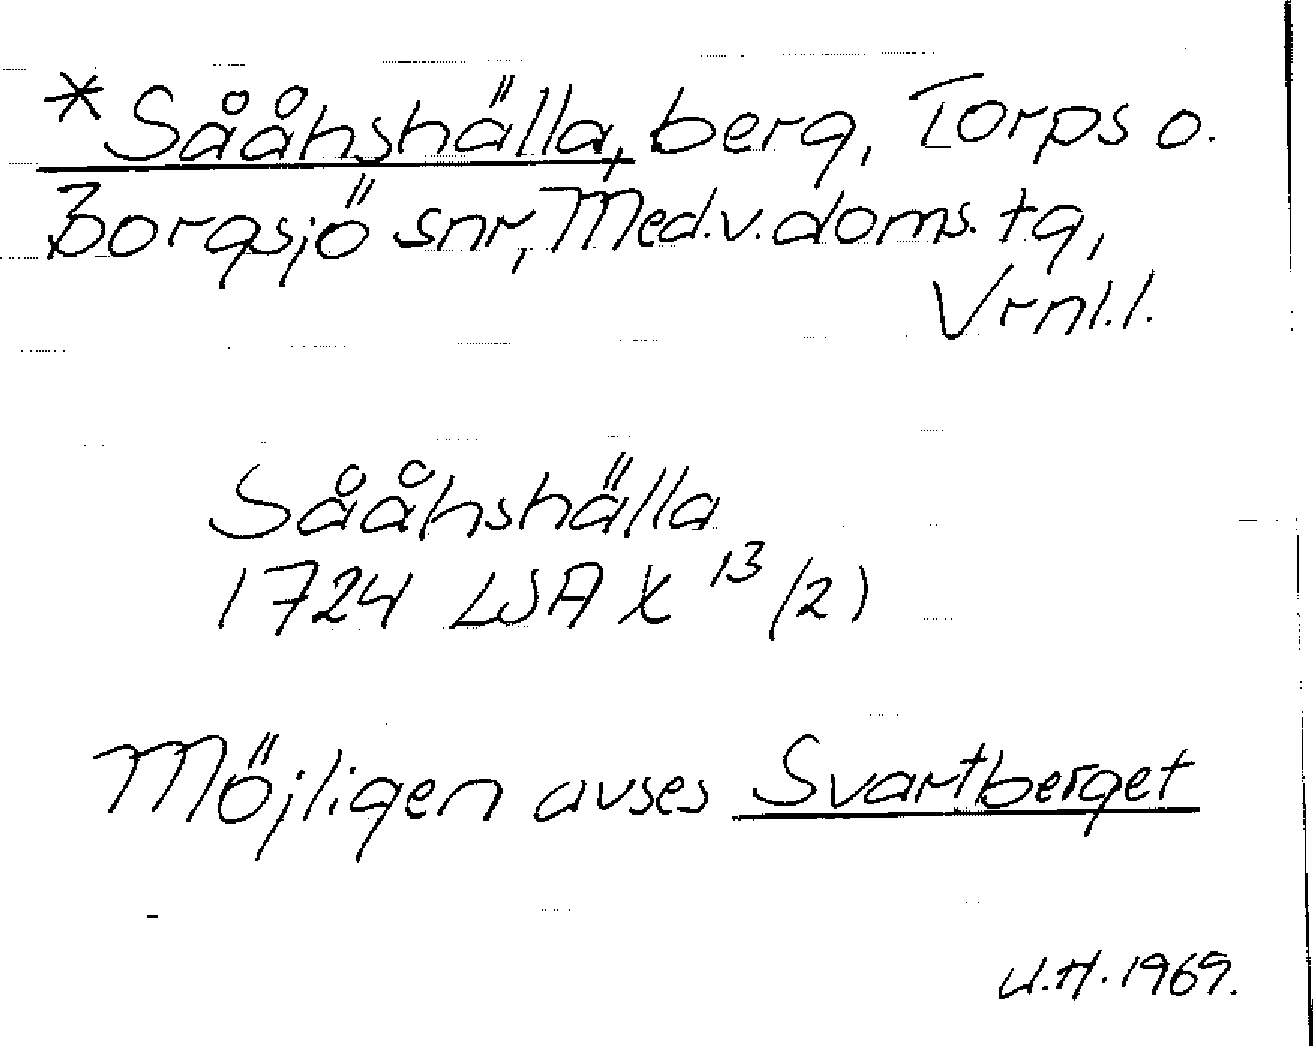 *Sååhshälla, berg, Torps o.
Borgsjö snr, Med.v.doms. tg,
Vrnl.l.
Sååhshälla
1724 LSA X 13/2)
Möjligen avses Svartberget
U.H. 1969.